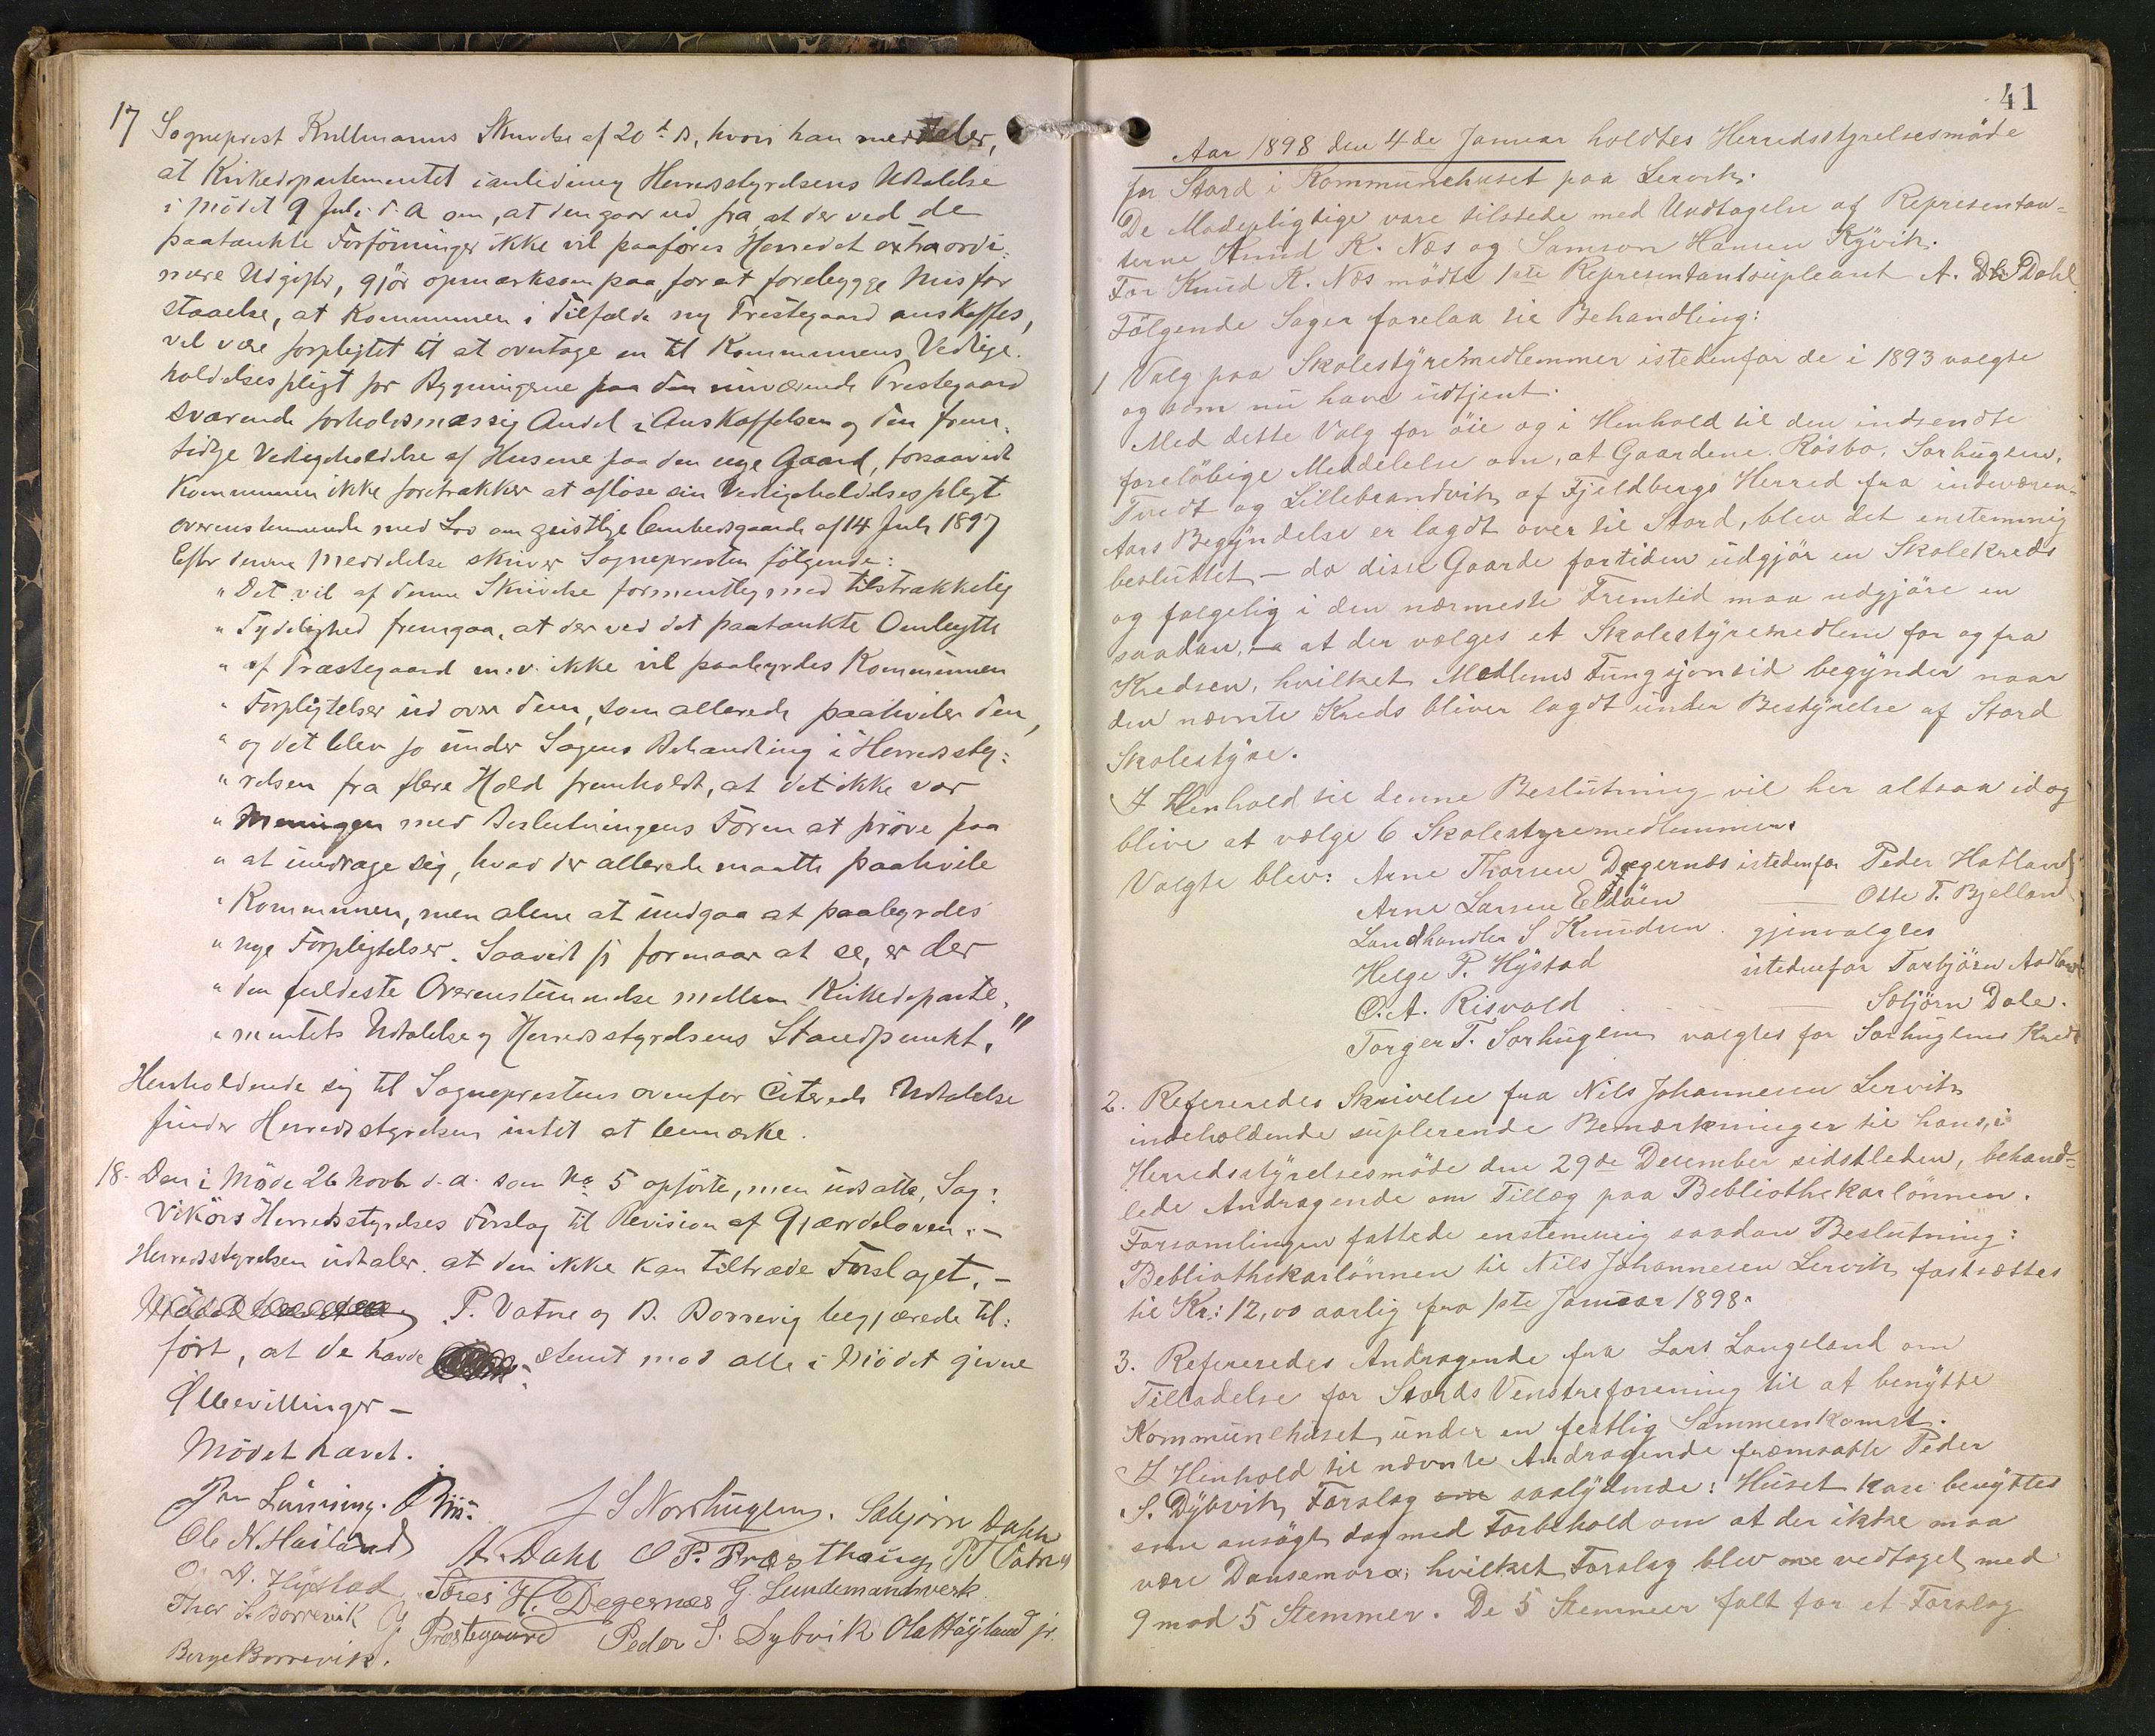 17 Sogneprest Kullmanns Skrivelse af 20de d., hvori han meddeler,
at Kirkedepartementet i anledning Herredsstyrelsens Udtalelse
i Mødet 9 Juli d. A. om, at den gaar ud fra, at der ved de
paatænkte Forføininger ikke vil paaføres Herredet extraordi-
nære Udgifter, gjør opmærksom paa, for at forebygge Misfor
staaelse, at Kommunen i Tilfælde ny Prestegaard anskaffes,
vil være forpligtet til at overtage en til Kommunens Vedlige-
holdelsespligt for Bygningerne paa den nuværende Prestegaard
svarende forholdsmæssig Andel i Anskaffelsen og den frem-
tidige Vedligeholdelse af Husene paa den nye Gaard, forsaavidt
Kommunen ikke foretrækker at afløse sin Vedligeholdelsespligt
overensstemmende med Lov om geistlige Embedsgaarde af 14 Juli 1897
Efter denne Meddelelse skriver Sognepresten følgende:
"Det vil af denne Skrivelse formentlig med tilstrækkelig
"Tydelighed fremgaa, at der ved det paatænkte Ombytte
"af Præstegaard m.v. ikke vil paabyrdes Kommunen
"Forpligtelser ud over dem, som allerede paahviler den,
"og det blev jo under Sagens Behandling i Herredssty-
"relsen fra flere Hold fremholdt, at det ikke var
"Meningen med Beslutningens Form at prøve paa
"at unddrage sig, hvad der allerede maatte paahvile
"Kommunen, men alene at undgaa at paabyrdes
"nye Forpligtelser. Saavidt jeg formaar at se, er der
"den fuldeste Overensstemmelse mellem Kirkedeparte-
"mentets Udtalelse og Herredsstyrelsens Standpunkt."
Henholdende sig til Sogneprestens ovenfor citerede Udtalelse
finder Herredsstyrelsen intet at bemærke.
18. Den i Møde 26 Novbr d. a. som No 5 opførte, men udsatte, Sag:
Vikørs Herredsstyrelses Forslag til Revision af Gjærdeloven. -
Herredsstyrelsen udtaler, at den ikke kan tiltræde Forslaget. -
P. Vatne og B. Borrevig begjærede til-
ført, at de havde stemt mod alle i Mødet givne
Ølbevillinger -
Mødet hævet.
Ole N. Hailand J S Nordhuglens. Sæbjørn Dahle
A. Dahl O P. Præsthaug P T Vatne
O. A. Hystad Tøres H. Degernes G. Lundemandsverk
Thor S. Borrevik Præstegaard Peder S. Dybvik Ola Høyland jr.
Børge Borrevik.
41
Aar 1898 den 4de Januar holdtes Herredsstyrelsesmøde
for Stord i Kommunehuset paa Lervik.
De Mødepligtige vare tilstede med Undtagelse af Representan-
terne Knud K. Næs og Samson Hansen Kyvik.
For Knud K. Næs mødte 1ste Representantsupleant A. Dahl.
Følgende Sager forelaa til Behandling:
1 Valg paa Skolestyremedlemmer istedenfor de i 1893 valgte
og som nu have udtjent.
Med dette Valg for øie og i Henhold til den indsendte
foreløbige Meddelelse om, at Gaardene Røsbø, Sørhuglen,
Tvedt og Lillebrandvik af Fjeldbergs Herred fra indeværen-
Aars Begyndelse er lagdt over til Stord, blev det enstemmig
besluttet - da disse Gaarde fortiden udgjør en Skolekreds
og følgelig i den nærmeste Fremtid maa udgjøre en
saadan, - at der vælges et Skolestyremedlem for og fra
Kredsen, hvilket Medlems Fungsjonstid begynder naar
den nævnte Kreds bliver lagdt under Bestyrelse af Stord
Skolestyre.
I Henhold til denne Beslutning vil her altsaa idag
blive at vælge 6 Skolestyremedlemmer.
Valgte blev: Arne Thorsen Dægernæs istedenfor Peder Hatland
Arne Larsen Eldøen — Otte T. Bjelland
Landhandler S Knudsen gjenvalgtes
Helge P. Hystad istedenfor Torbjørn Aadland
O. A. Risvold — Sæbjørn Dale.
Torger T. Sørhuglen valgtes for Sørhuglens Kreds
2. Refereredes Skrivelse fra Nils Johannesen Lervik
indeholdende suplerende Bemærkninger til hans, i
Herredsstyrelsesmøde den 29de December sidstleden, behand-
lede Andragende om Tillæg paa Bibliothekarlønnen.
Forsamlingen fattede enstemmig saadan Beslutning:
Bibliothekarlønnen til Nils Johannesen Lervik fastsættes
til Kr: 12,00 aarlig fra 1ste Januar 1898.
3. Refereredes Andragende fra Lars Langeland om
Tilladelse for Stords Venstreforening til at benytte
Kommunehuset under en festlig Sammenkomst.
I Henhold til nævnte Andragende fremsatte Peder
S. Dybvik Forslag saalydende: Huset kan benyttes
som ansøgt dog med Forbehold om at der ikke maa
være Dansemoro; hvilket Forslag blev vedtaget med
9 mod 5 Stemmer. De 5 Stemmer falt for et Forslag